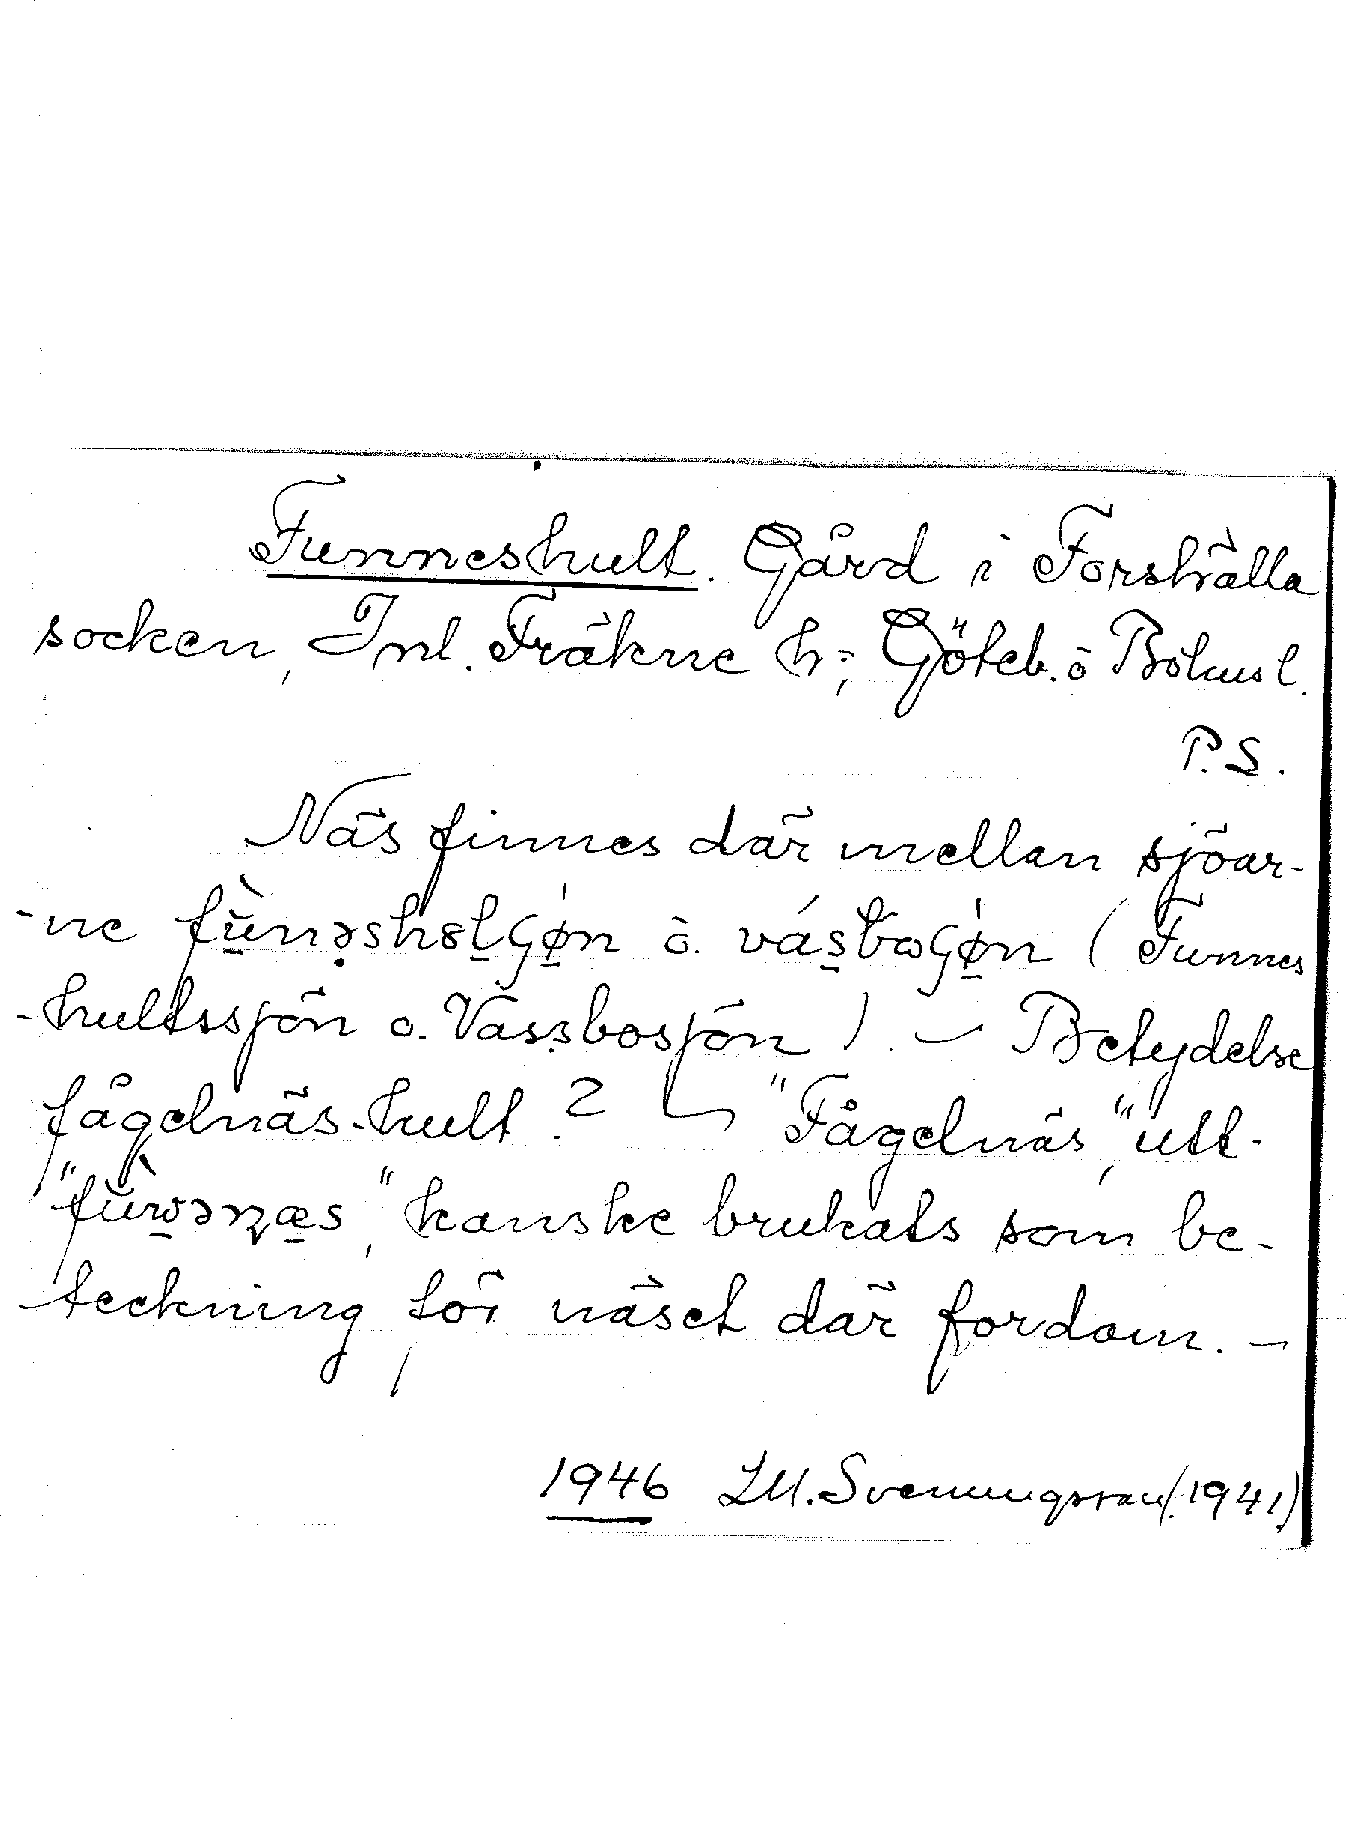 Funneshult. Gård i Forshälla
socken, Inl. Fräkne h:; Göteb. o Bohusl.
P.S.
Näs finnes där mellan sjöar-
-ne fùnəshɞlʕǿn o. vásbɷʕǿn (Funnes
-hultssjön o. Vassbosjön). – Betydelse
fågelnäs-hult? "Fågelnäs", utt-
"fùɷəɳæs", kanske brukats som be-
teckning för näset där fordom. –
1946 Sveningsson (1941)